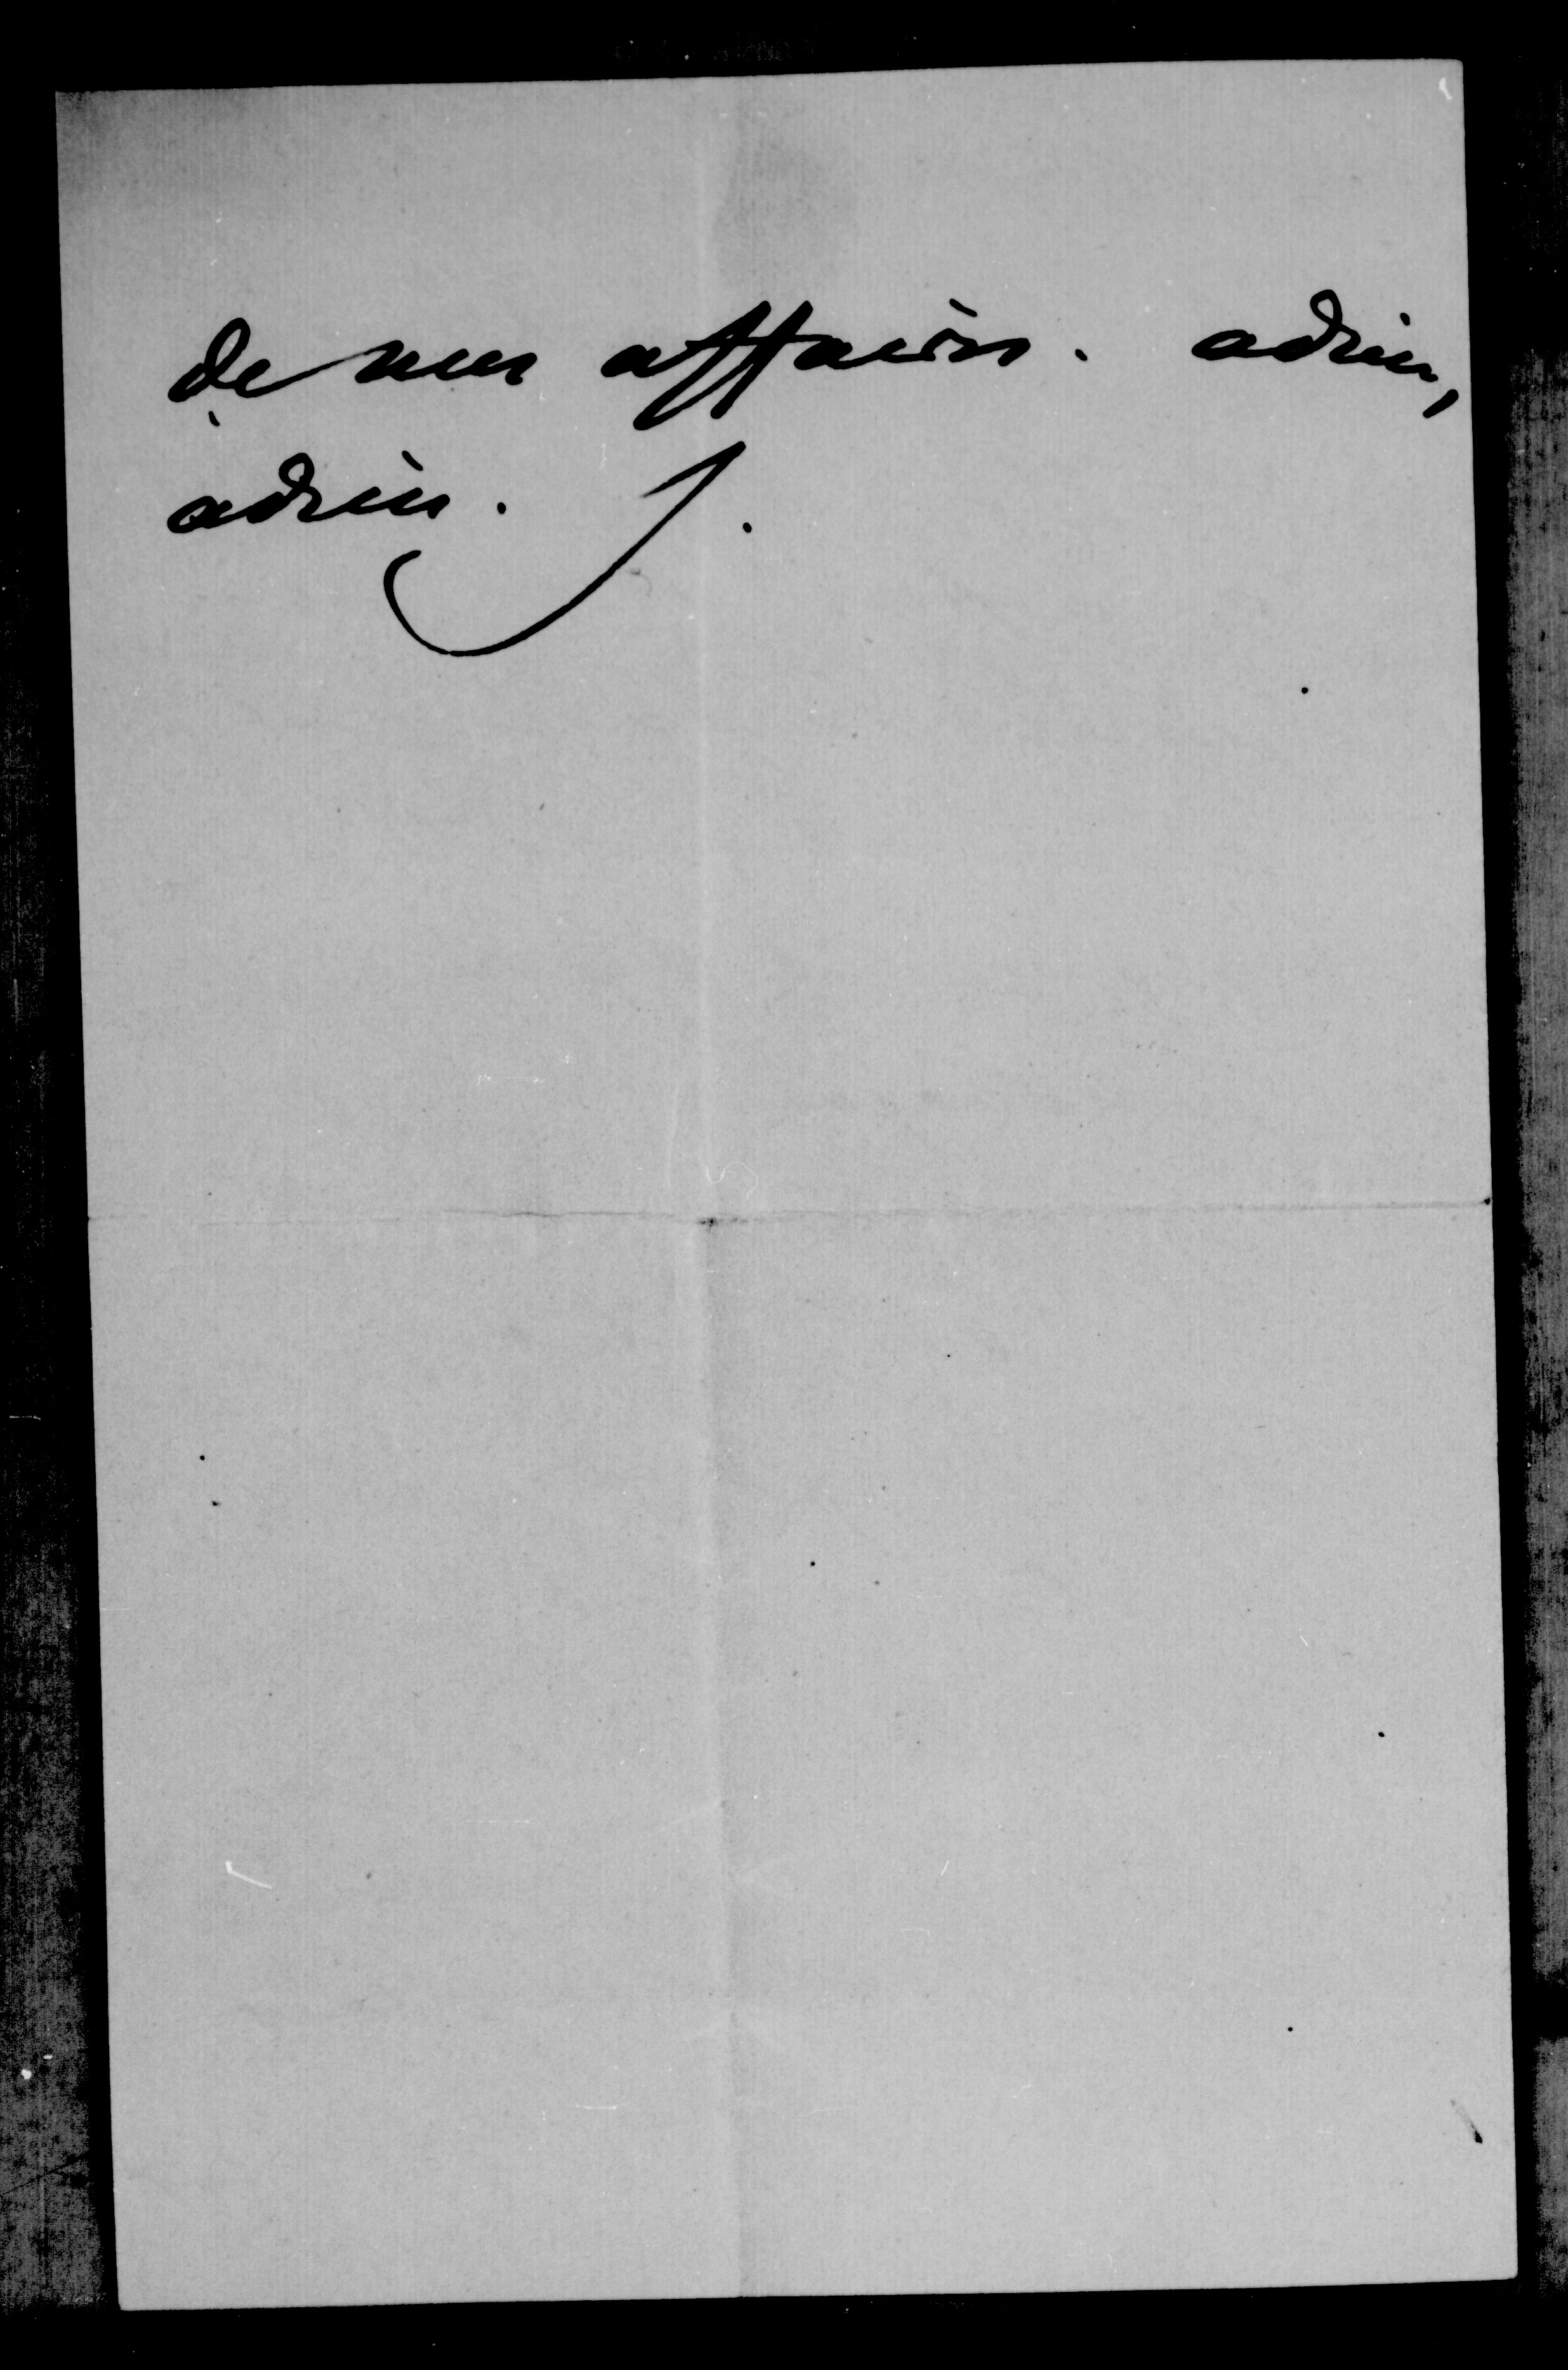 de mes affaires. adieu,
adieu. J.